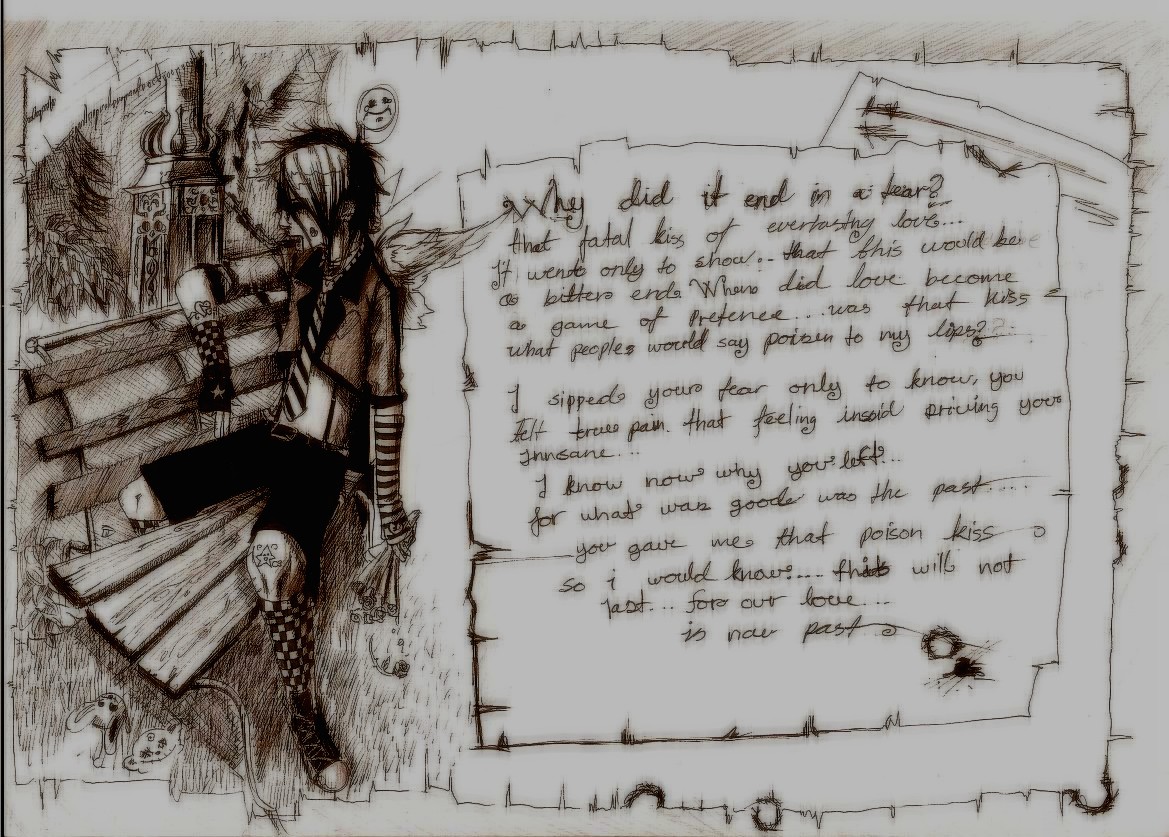 Why did it end in a tear?
that fatal kiss of everlasting love...
It went only to show... that this would be
a bitter end. When did love become
a game of Pretence... was that kiss
what people would say poison to my lips?
I sipped your tear only to know, you
felt true pain. that feeling insoid driving your
innsane...
I know now why you left...
for what was good was the past....
you gave me that poison kiss
so i would know.... this will not
last... for our love...
is now past